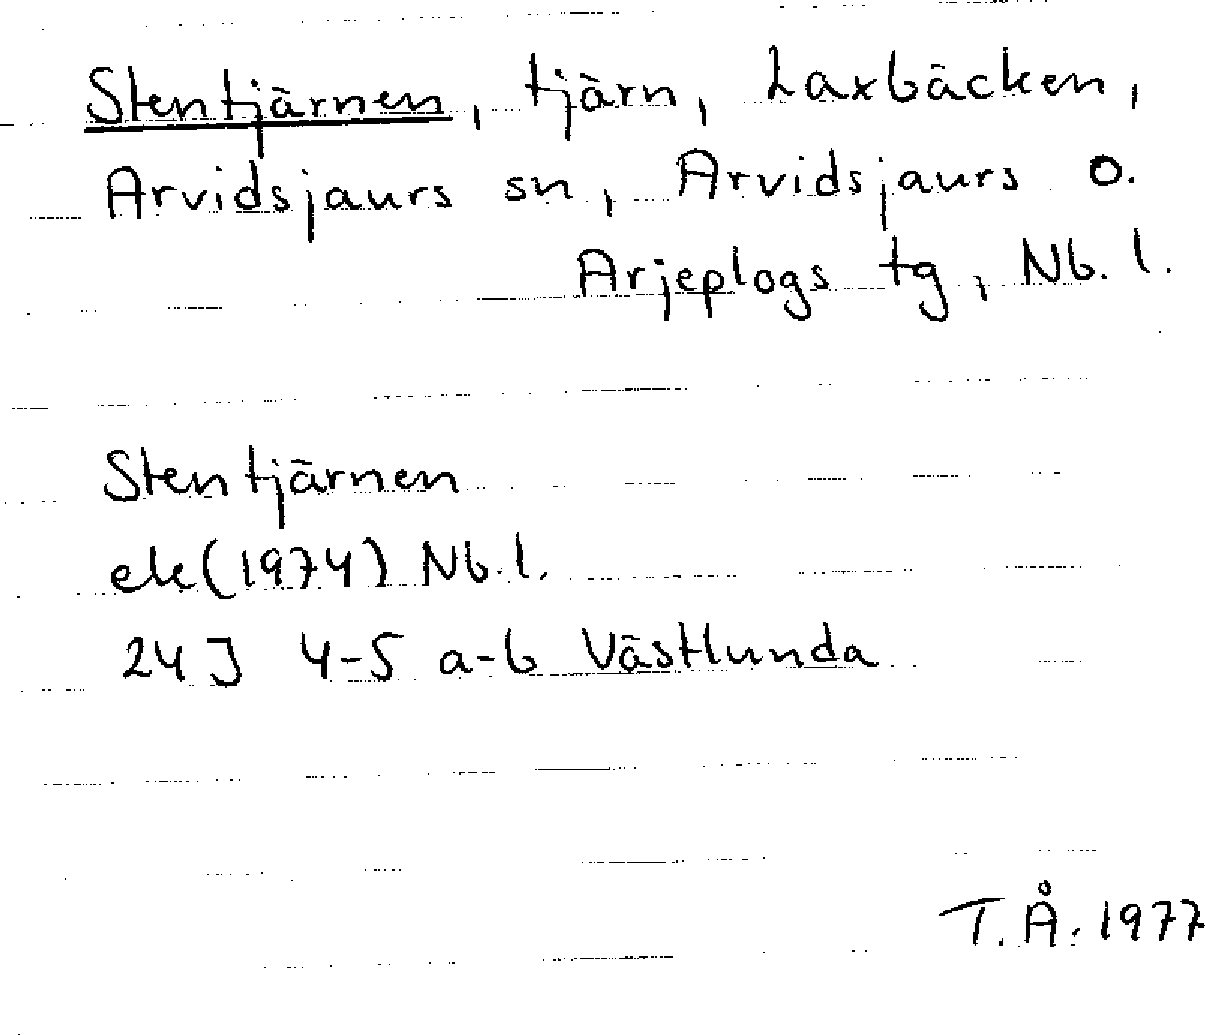 Stentjärnen, tjärn, Laxbäcken,
Arvidsjaurs sn, Arvidsjaurs o.
Arjeplogs tg, Nb. l.
Stentjärnen
ek (1974) Nb. l.
24J 4-5 a-b Västlunda
T.Å. 1977